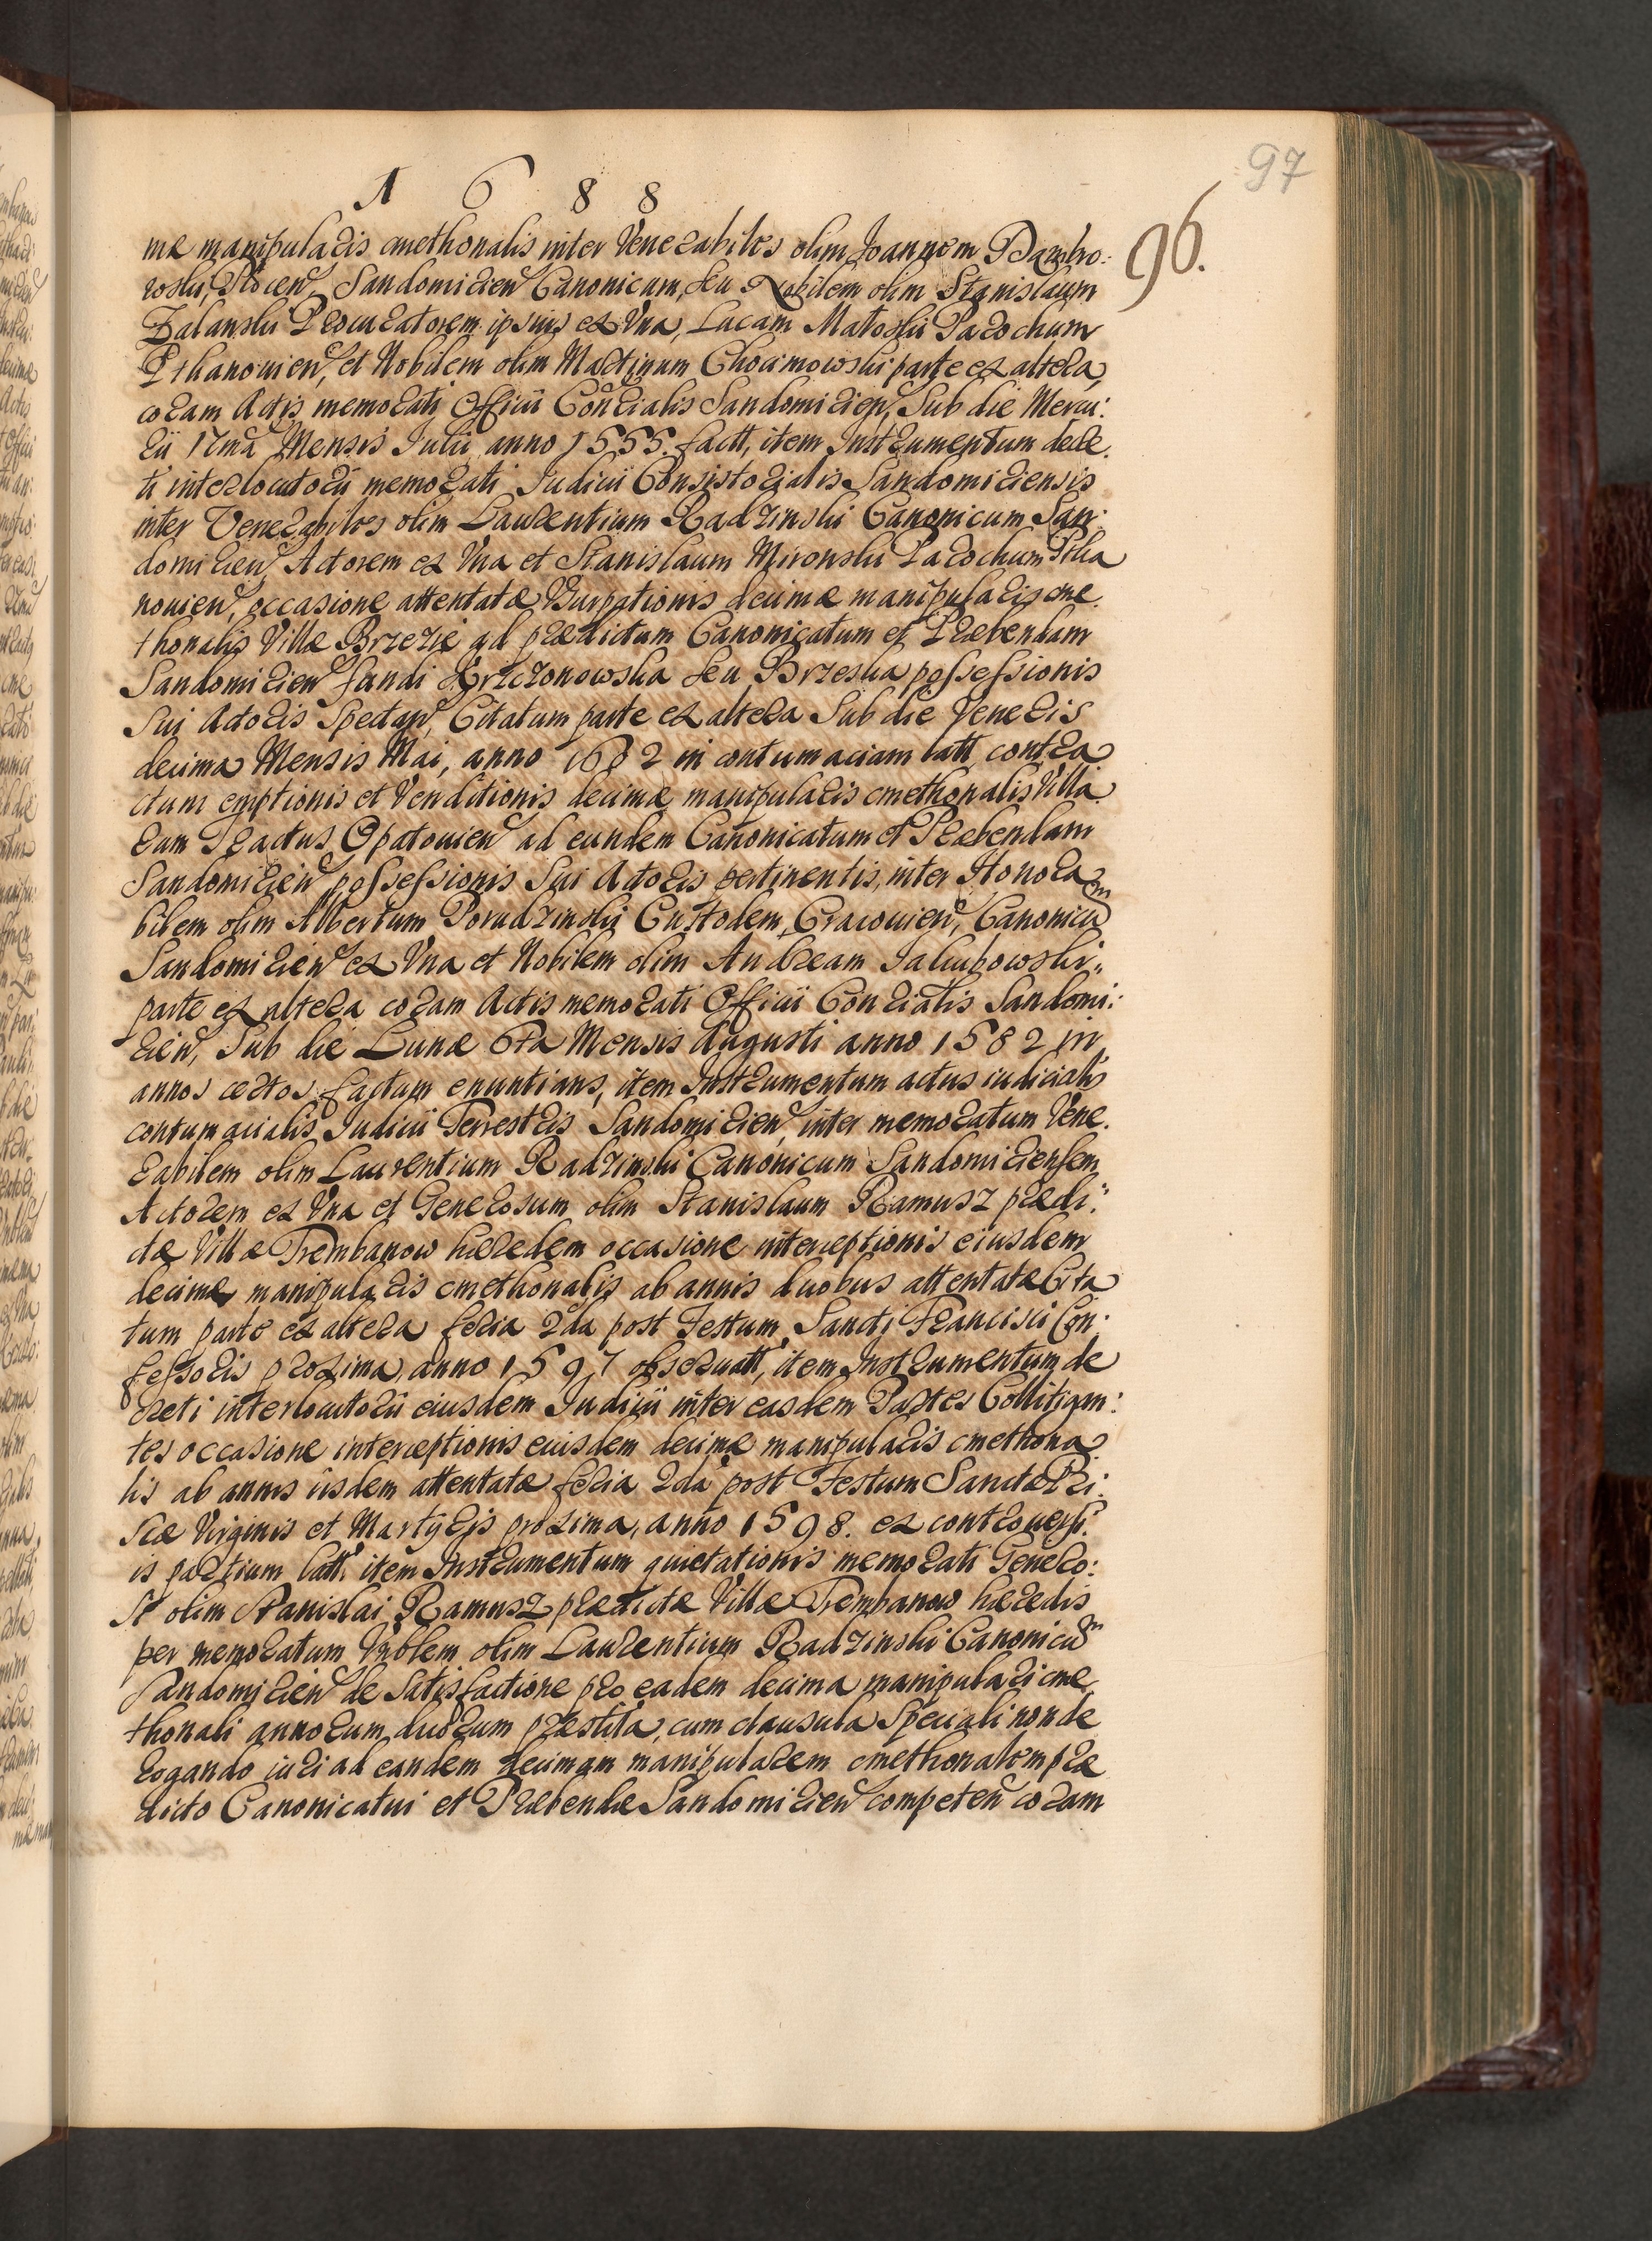 97
1 6 8 8
96.
mæ manipularis cmethonalis inter Venerabiles olim Joannem Dambro:
wski, Plocen, Sandomirien Canonicum, seu Nobilem olim Stanislaum
Zalanski Procuratorem ipsius ex Vna, Lucam Matoski Parochum
Pthanouien, et Nobilem olim Martinum Chocimowski parte ex altera,
coram Actis memorati Officii Consialis Sandomirien, Sub die Mercu:
rii 17ma Mensis Julii anno 1555. factt, item Instrumentum decre.
ti interlocutorii memorati Judicii Consistorialis Sandomiriensis
inter Venerabiles olim Laurentium Radzinski Canonicum San:
domirien, Actorem ex Vna et Stanislaum Mironski Parochum Ptha
nouien, occasione attentatæ Vsurpationis decimæ manipularis cme.
thonalis Villæ Brzezie ad prædictum Canonicatum et Præbendam
Sandomirien fundi Krzczonowska seu Brzeska possessionis
sui Actoris Spectan, Citatum parte ex altera Sub die Veneris
decima Mensis Mai, anno 1682 in contumaciam latt, contra
ctum emptionis et Venditionis decimæ manipularis cmethonalis Villa.
rum Tractus Opatouien ad eundem Canonicatum et Præbendam
Sandomirien possessionis Sui Actoris pertinentis, inter Honora
bilem olim Albertum Porudzinski Custodem, Cracouien, Canonicum
Sandomirien ex Vna et Nobilem olim Andream Jakubowski,,
parte ex altera coram Actis memorati Officii Consialis Sandomi:
rien, Sub die Lunæ 6ta Mensis Augusti anno 1582 in
annos certos factum enuntians, item Instrumentum actus iudicialis
contumacialis Judicii Terrestris Sandomirien, inter memoratum Vene.
rabilem olim Laurentium Radzinski Canonicum Sandomiriensem
Actorem ex Vna et Generosum olim Stanislaum Ramusz prædi:
ctæ Villæ Trembanow hæredem occasione interceptionis eiusdem
decimæ manipularis cmethonalis ab annis duobus attentatæ Cita
tum parte ex altera feria 2da post Festum Sancti Francisci Con:
fessoris proxima, anno 1597 obseruatt, item Instrumentum de
creti interlocutorii eiusdem Judicii inter easdem Partes Collitigan:
tes occasione interceptionis eiusdem decimæ manipularis cmethona
lis ab annis iisdem attentatæ feria 2da post Festum Sanctæ Pri:
scæ Virginis et Martyris proxima, anno 1598. ex controuersi:
is partium latt. item Instrumentum quietationis memorati Genero:
si olim Stanislai Ramusz prædictæ Villæ Trembanow hæredis
per memoratum Vnblem olim Laurentium Radzinski Canonicum
Sandomirien de Satisfactione pro eadem decima manipulari cme
thonali annorum duorum præstita, cum clausula Speciali non de
rogando iuri ad eandem decimam manipularem cmethonalem præ
dicto Canonicatui et Præbendæ Sandomirien competen coram